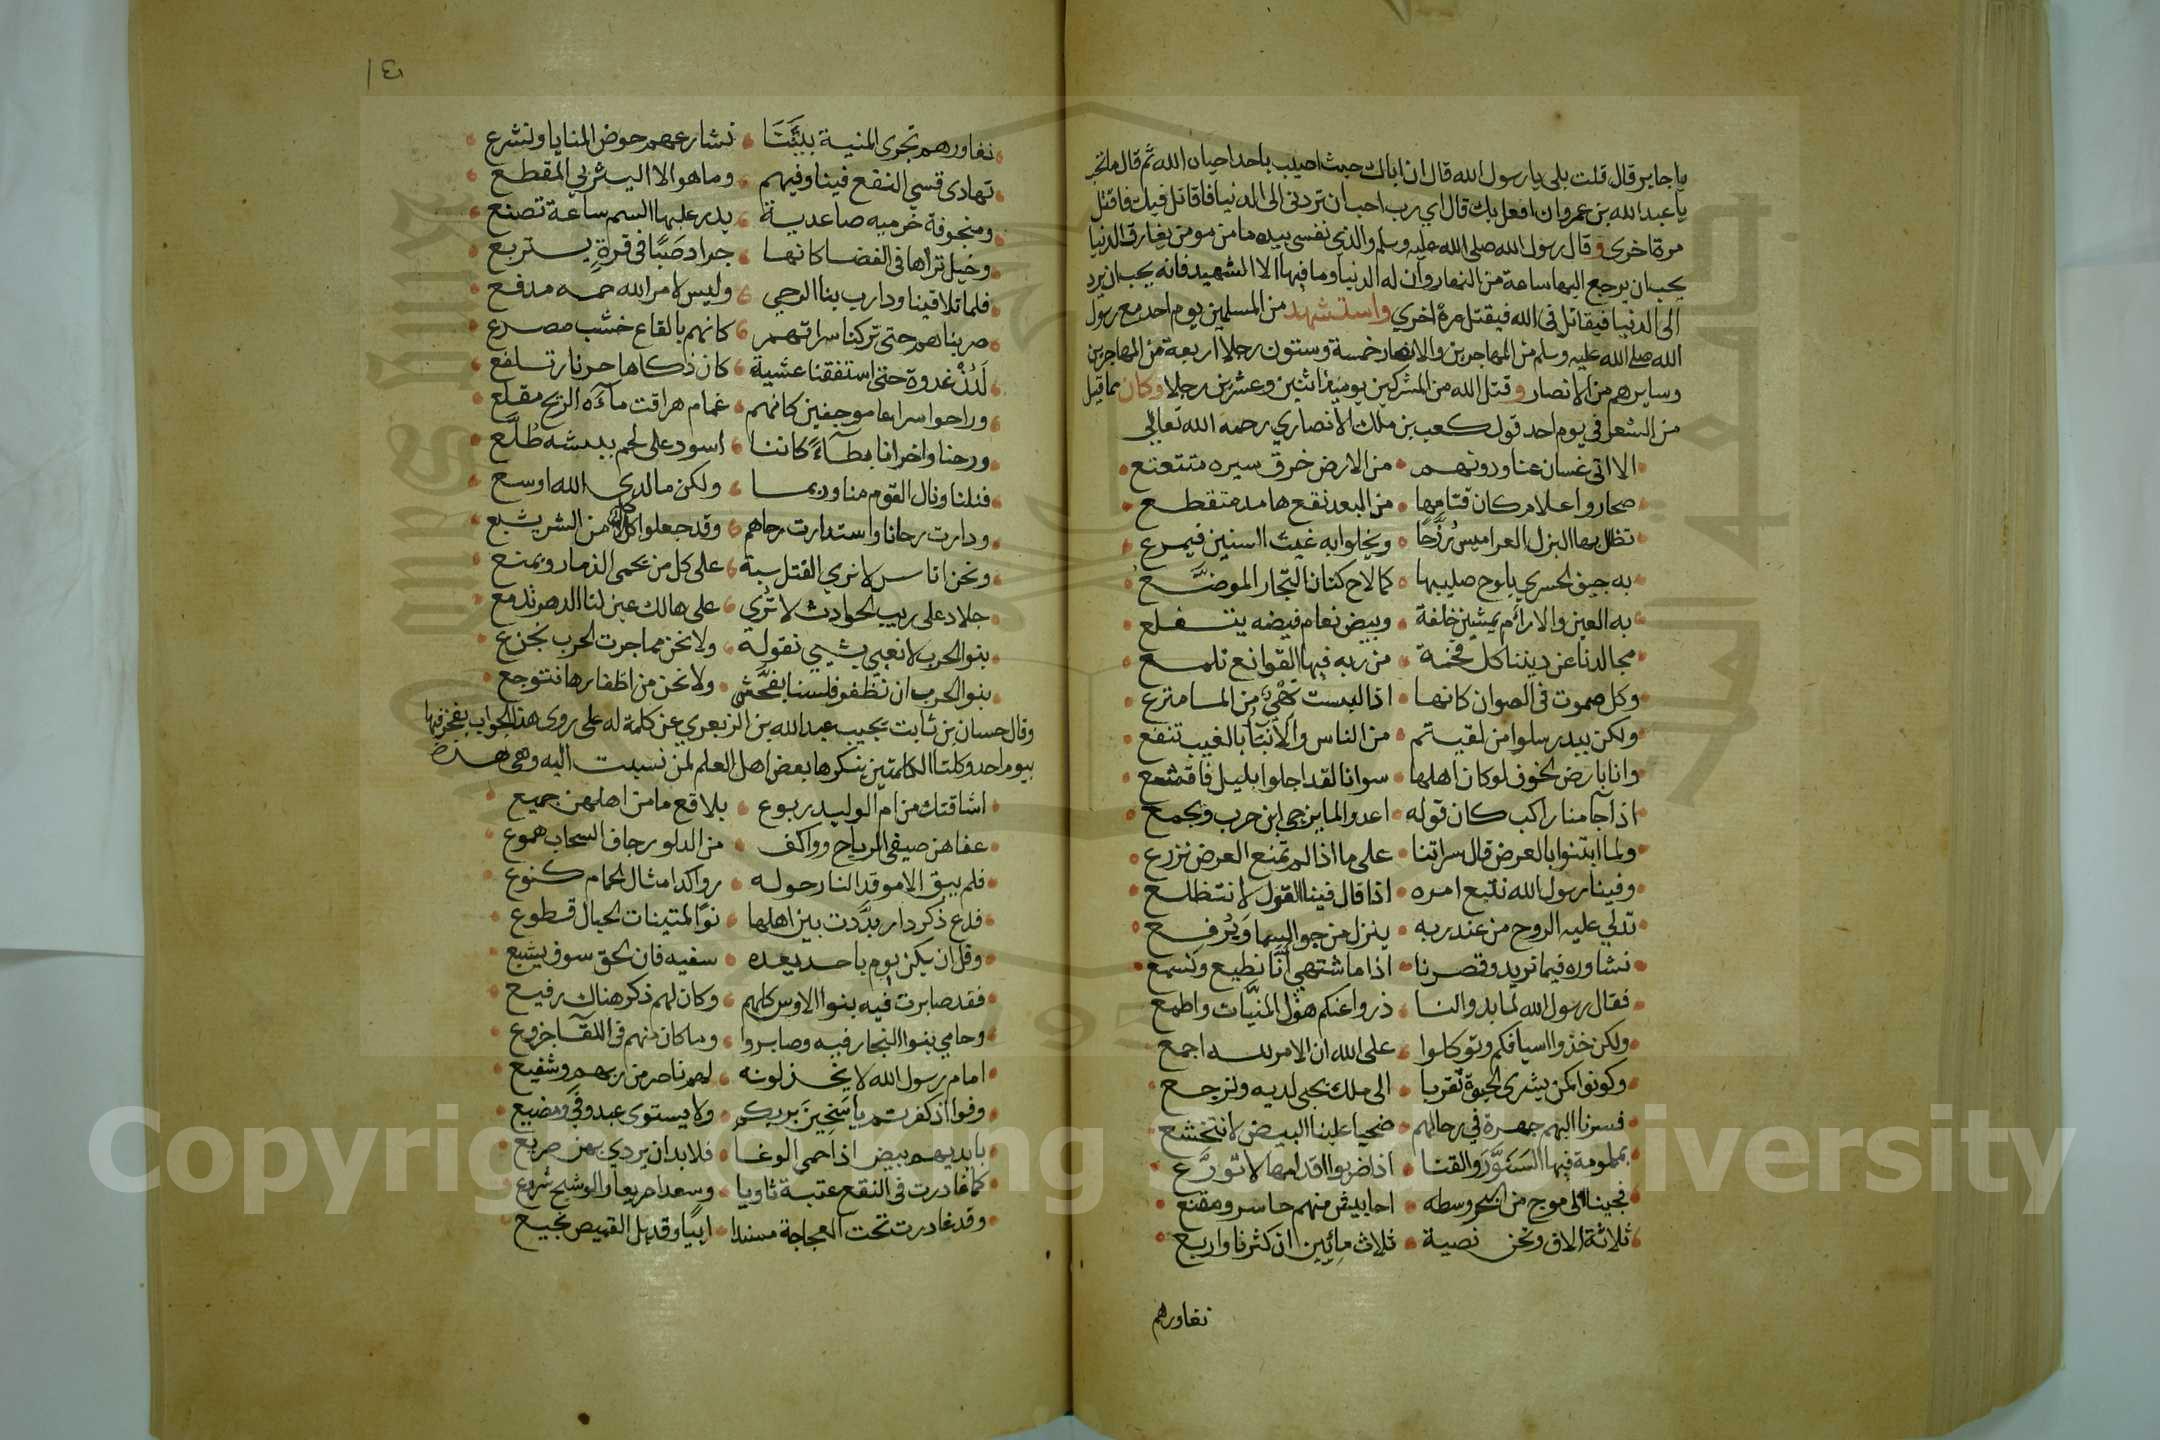 يا جابر قال قلت بلى يا رسول الله قال ان اباك حيث اصيب باحد احياه الله ثم قال ما تحب
يا عبد الله بن عمرو ان افعل بك قال اي رب احب ان تردني الى الدنيا فاقاتل فيك فاقتل
مرة اخرى وقال رسول الله صلى الله عليه وسلم والذي نفسي بيده ما من مومن يفارق الدنيا
يحب ان يرجع اليها ساعة من النهار وان له الدنيا وما فيها الا الشهيد فانه يحب ان يرد
الى الدنيا فيقاتل في الله فيقتل مرة اخري واستشهد من المسلمين يوم احد مع رسول
الله صلى الله عليه وسلم من المهاجرين والانصار خمسة وستون رجلا اربعة من المهاجرين
وسايرهم من الانصار وقتل الله من المشركين يوميذ اثنين وعشرين رجلا وكان مما قيل
من الشعر في يوم احد قول كعب بن ملك الانصاري رحمه الله تعالي
الا اتى غسان عنا ودونهم من الارض خرق سيره متتعتع
صحار واعلام كان قتامها من البعد نقع هامد متقطع
تظل بها البزل العراميس رزحا ويخلوا به غيث السنين فيمرع
به جيف الحسري يلوح صليبها كما لاح كتان التجار الموضع
به العين والارأم يمشين خلفة وبيض نعام قيضه يتفلع
مجالدنا عن ديننا كل فخمة مذربه فيها القوانع تلمع
وكل صموت في الصوان كانها اذا لبست نهي من الما مترع
ولكن ببدر سلوا من لقيتم من الناس والانبآ بالغيب تنفع
وانا بارض الخوف لو كان اهلها سوانا لقد اجلوا بليل فاقشعوا
اذا جا منا راكب كان قوله اعدوا لما يزجي ابن حرب ويجمع
ولما ابتنوا بالعرض قال سراتنا على ما اذا لم تمنع العرض نزرع
وفينا رسول الله نتبع امره اذا قال فينا القول لا نتظلع
تدلي عليه الروح من عند ربه ينزل من جو السما ويرفع
نشاوره فيما نريد وقصرنا اذا ما اشتهي انا نطيع ونسمع
فقال رسول الله لما بدوا لنا ذروا عنكم هول المنيات واطمع
ولكن خذوا اسيافكم وتوكلوا على الله ان الامر لله اجمع
وكونوا كمن يشرى الحيوة تقربا الى ملك يحيى لديه ونرجع
فسرنا اليهم جهرة في رحالهم ضحيا علينا البيض لا نتخشع
بملمومة فيها السنور والقنا اذا ضربوا اقدامها لا تورع
فجينا الى موج من البحر وسطه احابيش منهم حاسر ومقنع
ثلاثة الاف ونحن نصية ثلاث مائين ان كثرنا واربع
نغاورهم
نغاورهم تجرى المنية بيننا نشارعهم حوض المنايا ونشرع
تهادى قسي النفع فينا وفيهم وما هو الا اليثربي المقطع
ومنجوفة خرميه صاعدية يدر عليها السم ساعة تصنع
وخيل تراها في الفضا كانها جراد صبا في قرة يتربع
فلما تلاقينا ودارت بنا الرحي وليس لامر الله حمه مدفع
ضربناهم حتى تركنا سراتهم كانهم بالقاع خشب مصرع
لدن غدوة حتى استفقنا عشية كان ذكاها حر نار تلفع
وراحوا سراعا موجفين كانهم غمام هراقت مآءه الريح مقلع
ورحنا واخرانا بطآء كاننا اسود على لحم ببيشه ظلع
فنلنا ونال القوم منا وربما ولكن ما لدي الله اوسع
ودارت رحانا واستدارت رحاهم وقد جعلوا كل من الشر يشبع
ونحن اناس لا نري القتل سبة على كل من يحمى الذمار ويمنع
جلاد على ريب الحوادث لا ترى على هالك عين لنا الدهر تدمع
بنو الحرب لا نعيي بشيي نقوله ولا نحن مما جرت الحرب نجزع
بنو الحرب ان نظفر فلسنا بفحش ولا نحن من اظفارها نتوجع
وقال حسان بن ثابت يجيب عبد الله بن الزبعري عن كلمة له على روى هذا الجواب يفخر فيها
بيوم احد وكلتا الكلمتين ينكرها بعض اهل العلم لمن نسبت اليه وهي هذه
اشاقتك من ام الوليد ربوع بلاقع ما من اهلهن جميع
عفاهن صيفي الرياح وواكف من الدلو رجاف السحاب هموع
فلم يبق الا موقد النار حوله رواكد امثال الحمام كنوع
فدع ذكر دار بددت بين اهلها نوًا لمتينات الحبال قطوع
وقل ان يكن يوم باحد يعده سفيه فان الحق سوف يشيع
فقد صابرت فيه بنوا الاوس كلهم وكان لهم ذكر هناك رفيع
وحامي بنوا النجار فيه وصابروا وما كان منهم في اللقآ جزوع
امام رسول الله لا يخذلونه لهم ناصر من ربهم وشفيع
وفوا اذ كفرتم يا سخين بربكم ولا يستوى عبد وفي ومضيع
بايديهم بيض اذا حمي الوغا فلا بد ان يردي بهن صريع
كما غادرت في النقع عتبة ثاويا وسعدا صريعا والوشيج شروع
وقد غادرت تحت العجاجة مسندا ابيًا وقد بل القميص نجيع
Copyright © King Saud University